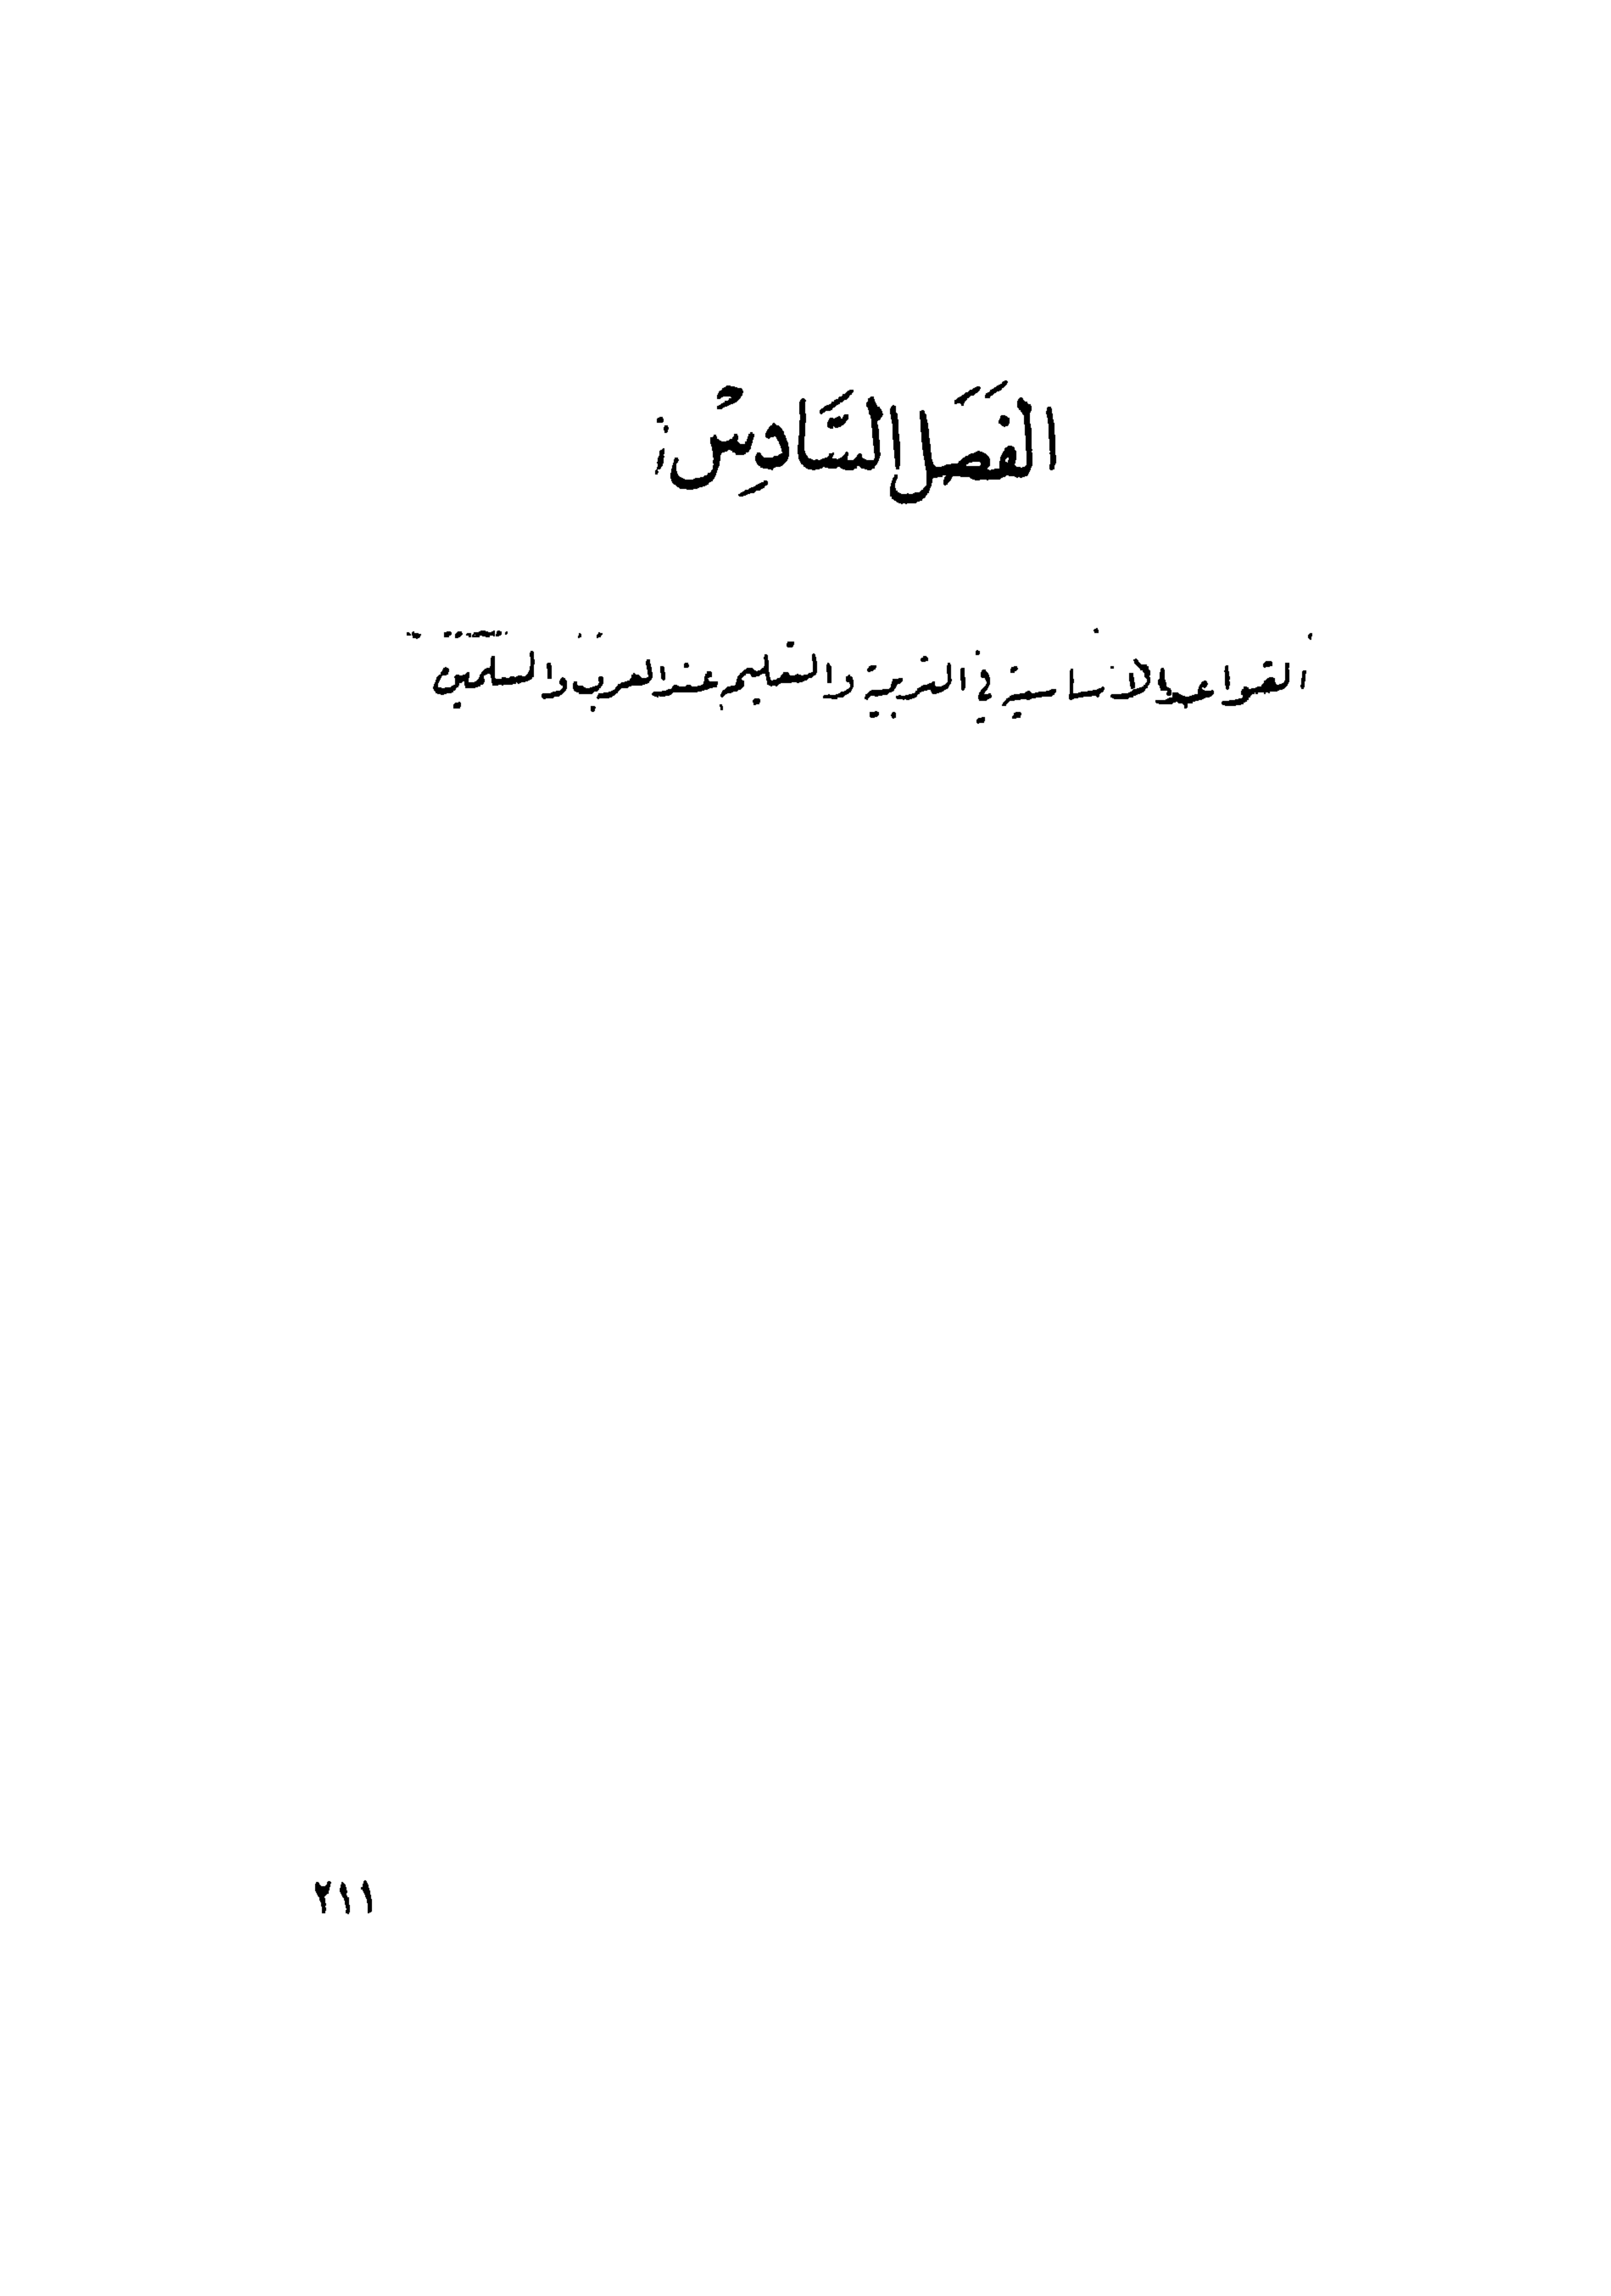 الفَصَل السَّادِسْ:
القواعد الأساسية في التربية والتعليم عند العرب والمسلمين
٢١١